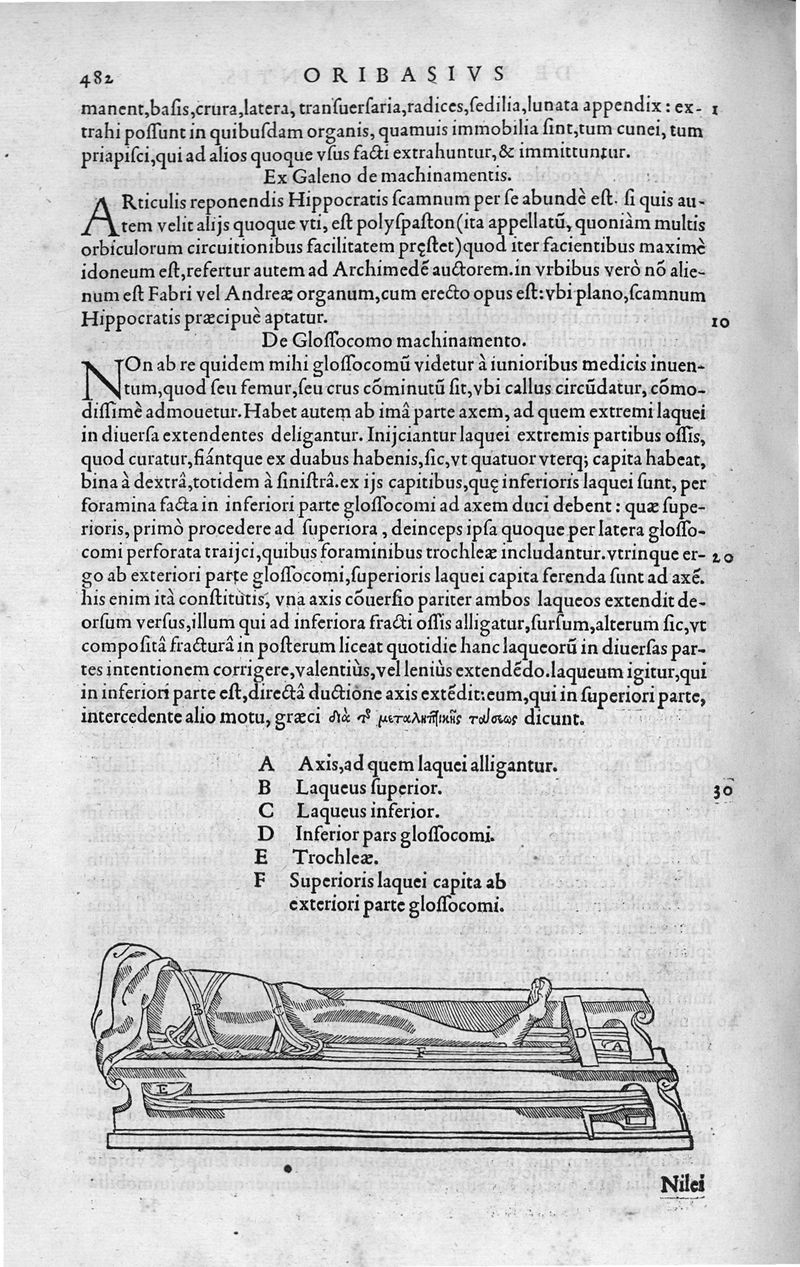 482 ORIBASIVS
manent,basis,crura,latera, transuersaria,radices,sedilia,lunata appendix : ex- 1
trahi possunt in quibusdam organis, quamuis immobilia sint,tum cunei, tum
priapisci,qui ad alios quoque vsus facti extrahuntur,& immittuntur.
Ex Galeno de machinamentis.
ARticulis reponendis Hippocratis scamnum per se abundè est. si quis au-
tem velit alijs quoque vti, est polyspaston(ita appellatũ, quoniàm multis
orbiculorum circuitionibus facilitatem pręstet)quod iter facientibus maximè
idoneum est,refertur autem ad Archimedẽ auctorem.in vrbibus verò nõ alie-
num est Fabri vel Andreæ organum,cum erecto opus est:vbi plano,scamnum
Hippocratis præcipuè aptatur. 10
De Glossocomo machinamento.
NOn ab re quidem mihi glossocomũ videtur à iunioribus medicis inuen-
tum,quod seu femur,seu crus cõminutũ sit,vbi callus circũdatur, cõmo-
dissimè admouetur.Habet autem ab imâ parte axem, ad quem extremi laquei
in diuersa extendentes deligantur. Inijciantur laquei extremis partibus ossis,
quod curatur,fiántque ex duabus habenis,sic,vt quatuor vterq; capita habeat,
bina à dextrâ,totidem à sinistrâ.ex ijs capitibus,quę inferioris laquei sunt, per
foramina facta in inferiori parte glossocomi ad axem duci debent : quæ supe-
rioris, primò procedere ad superiora , deinceps ipsa quoque per latera glosso-
comi perforata traijci,quibus foraminibus trochleæ includantur.vtrinque er- 20
go ab exteriori parte glossocomi,superioris laquei capita ferenda sunt ad axẽ.
his enim ità constitutis, vna axis cõuersio pariter ambos laqueos extendit de-
orsum versus,illum qui ad inferiora fracti ossis alligatur,sursum,alterum sic,vt
compositâ fracturâ in posterum liceat quotidie hanc laqueorũ in diuersas par-
tes intentionem corrigere,valentiùs,vel leniùs extendẽdo.laqueum igitur,qui
in inferiori parte est,directâ ductione axis extẽdit:eum,qui in superiori parte,
intercedente alio motu, græci διὰ τῆς μεταληπτικῆς τάσεως dicunt.
A Axis,ad quem laquei alligantur.
B Laqueus superior. 30
C Laqueus inferior.
D Inferior pars glossocomi.
E Trochleæ.
F Superioris laquei capita ab
exteriori parte glossocomi.
B
C
D
A
F
E
Nilei